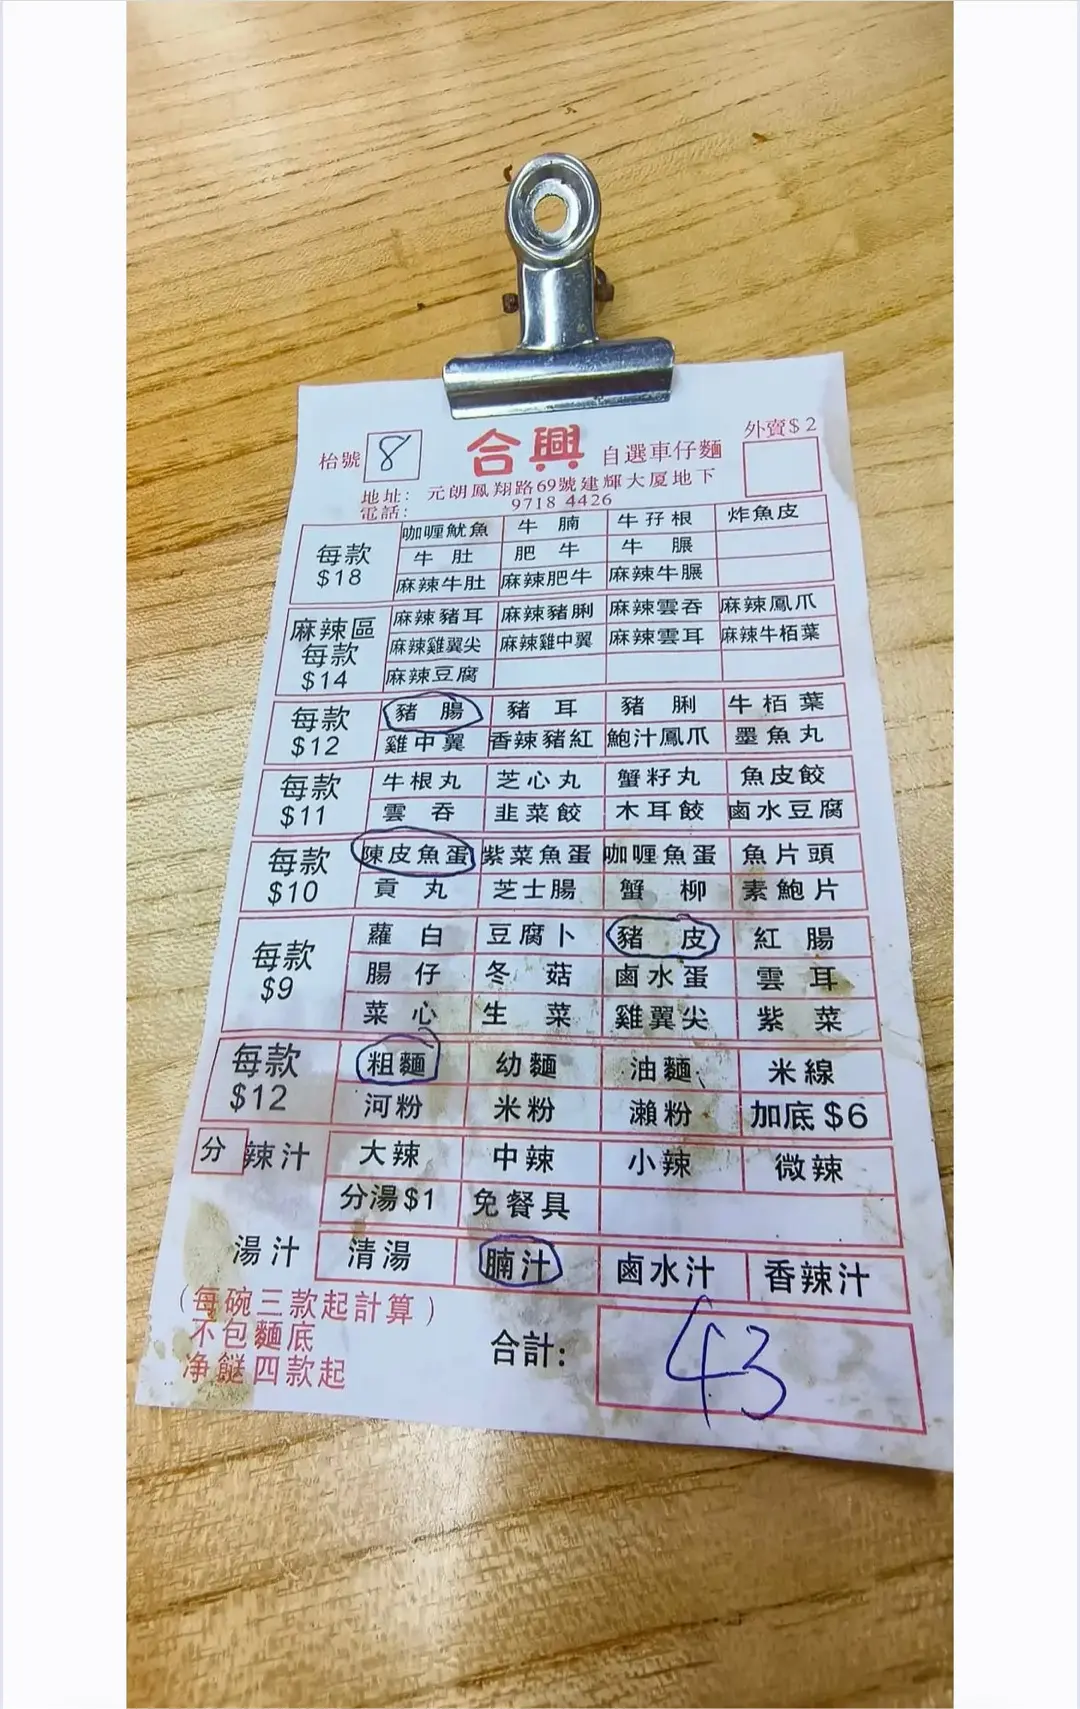 外賣$2
枱號 8 合興 自選車仔麵
地址: 元朗鳳翔路69號建輝大厦地下
電話: 9718 4426
每款 $18
咖喱魷魚 牛腩 牛孖根 炸魚皮
牛肚 肥牛 牛𦟌
麻辣牛肚 麻辣肥牛 麻辣牛𦟌
麻辣區 每款 $14
麻辣豬耳 麻辣豬脷 麻辣雲吞 麻辣鳳爪
麻辣雞翼尖 麻辣雞中翼 麻辣雲耳 麻辣牛栢葉
麻辣豆腐
每款 $12
豬腸 豬耳 豬脷 牛栢葉
雞中翼 香辣豬紅 鮑汁鳳爪 墨魚丸
每款 $11
牛根丸 芝心丸 蟹籽丸 魚皮餃
雲吞 韭菜餃 木耳餃 鹵水豆腐
每款 $10
陳皮魚蛋 紫菜魚蛋 咖喱魚蛋 魚片頭
貢丸 芝士腸 蟹柳 素鮑片
每款 $9
蘿白 豆腐卜 豬皮 紅腸
腸仔 冬菇 鹵水蛋 雲耳
菜心 生菜 雞翼尖 紫菜
每款 $12
粗麵 幼麵 油麵 米線
河粉 米粉 瀨粉 加底$6
分 辣汁 大辣 中辣 小辣 微辣
分湯$1 免餐具
湯汁 清湯 腩汁 鹵水汁 香辣汁
(每碗三款起計算)
不包麵底
净餸四款起
合計: 43